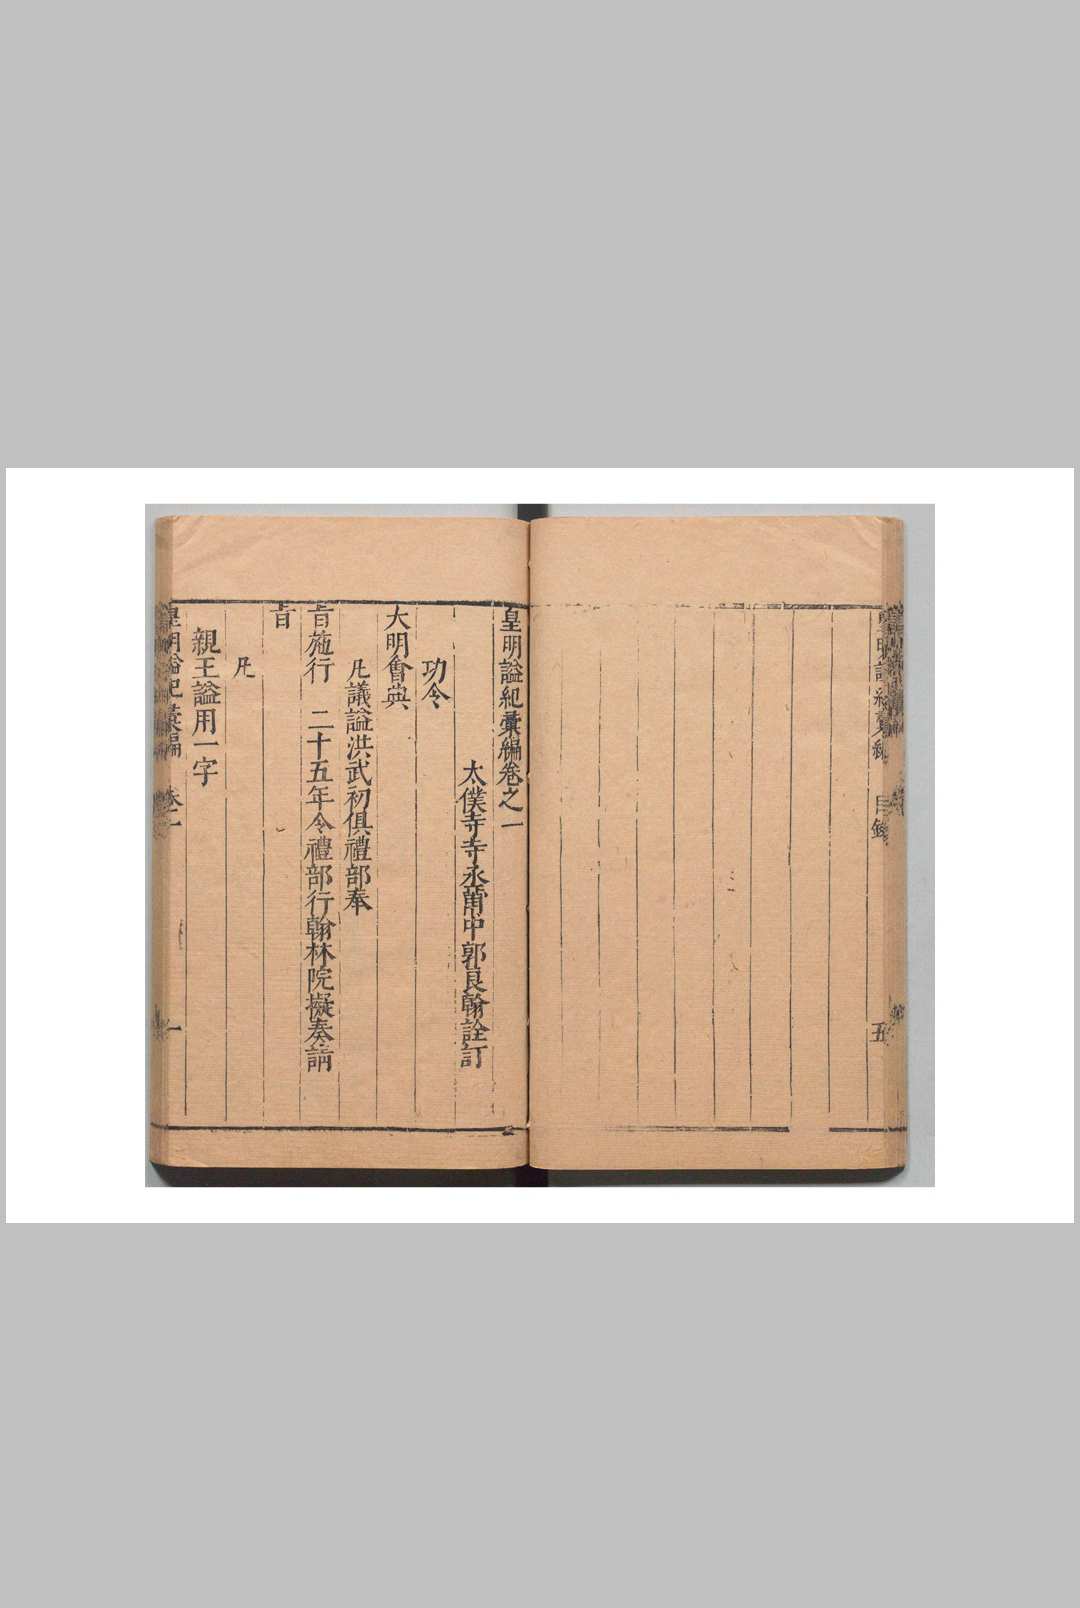 皇明謚紀彙編 目錄 五
皇明謚紀彙編卷之一
太僕寺寺丞萬中郭良翰詮訂
功令
大明會典
凡議謚洪武初俱禮部奉
旨施行 二十五年令禮部行翰林院擬奏請
旨
凡
親王謚用一字
皇明謚紀彙編 卷一 一